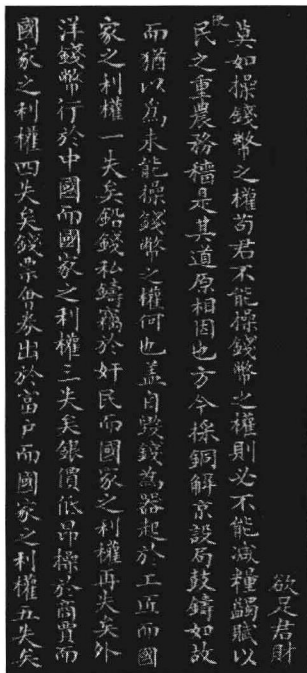 欲足君財
莫如操錢幣之權苟君不能操錢幣之權則必不能減糧蠲賦以
使民之重農務穡是其道原相因也方今採銅解京設局鼓鑄如故
而猶以爲未能操錢幣之權何也蓋自毀錢爲器起於工匠而國
家之利權一失矣鉛錢私鑄竊於奸民而國家之利權再失矣外
洋錢幣行於中國而國家之利權三失矣銀價低昂操於商賈而
國家之利權四失矣錢票會券出於富戶而國家之利權五失矣